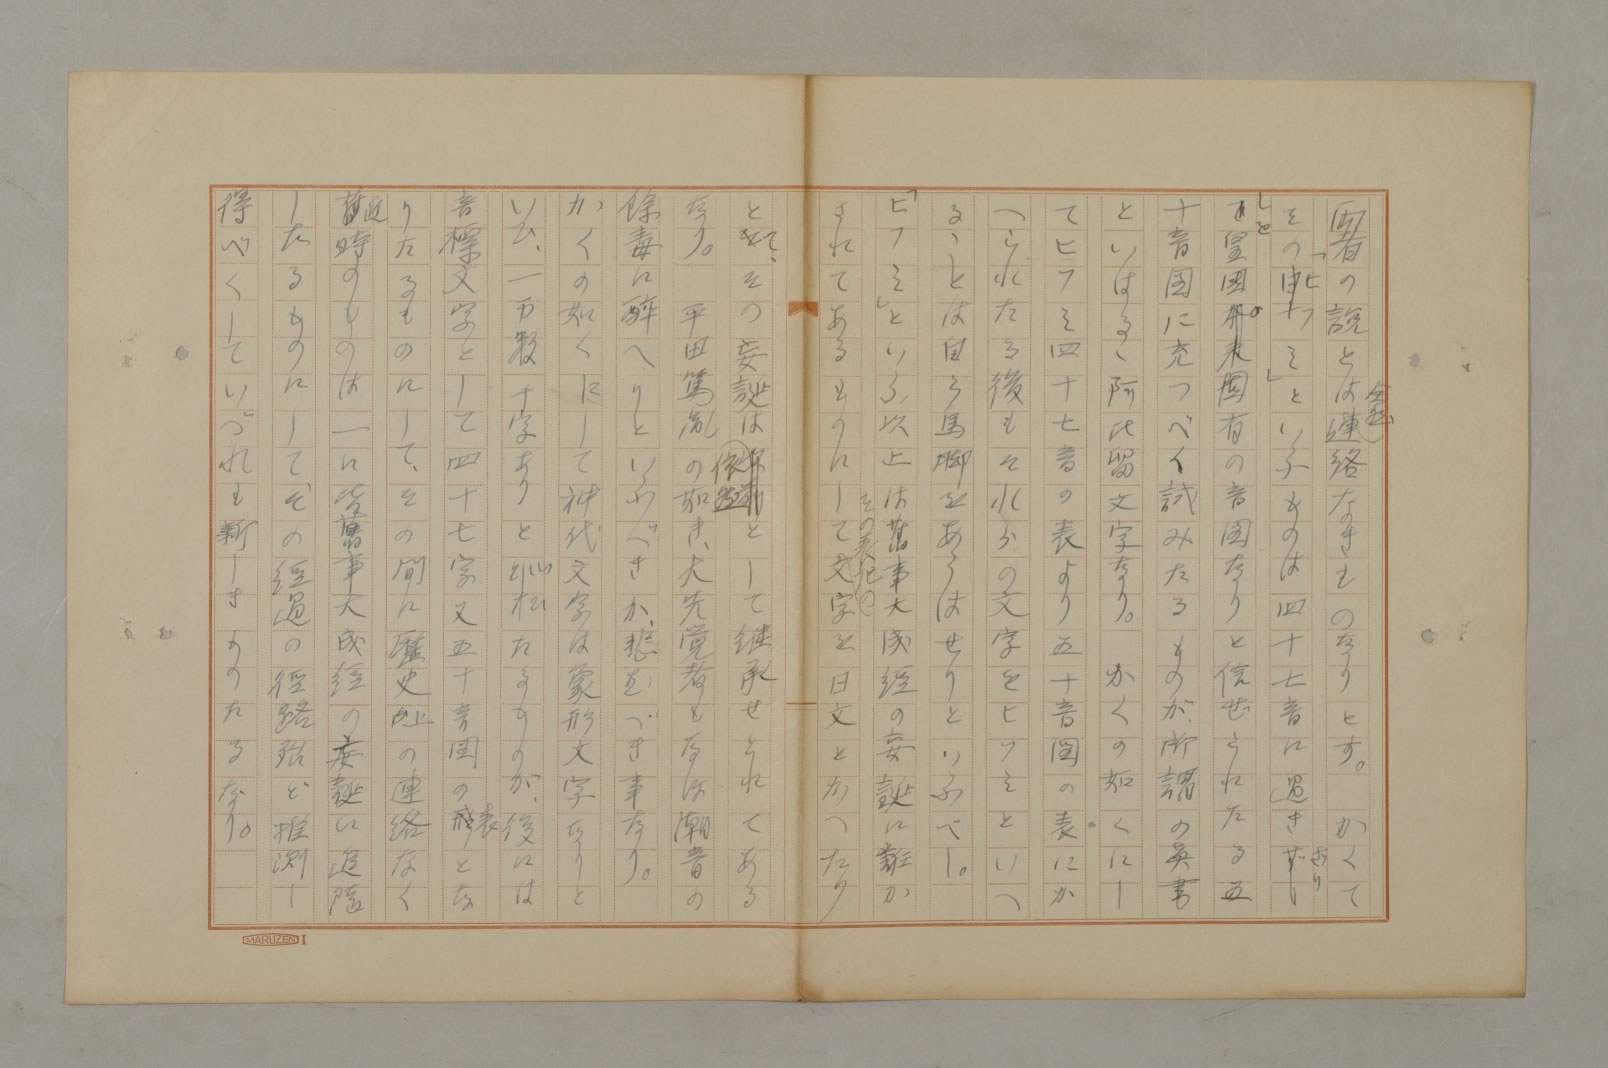 両者の説とは全然連絡なきものなりとす。　かくて
その「ヒフミ」といふものは四十七音に過ぎずし
を皇国固有の音図なりと信ぜられたる五
十音図に充つべく試みたるものが、所謂の異書
といはるゝ阿比留文字なり。　かくの如くにし
てヒフミ四十七音の表より五十音図の表にか
へられたる後もそれらの文字をヒフミといへ
ることは自ら馬脚をあらはせりといふべし。
「ヒフミ」といふ以上は旧事大成経の妄誕に難か
されてあるものにしてその表記の文字を日文とかへたり
とて、その妄誕は依然として継承せられてある
なり。　平田篤胤の如き、大先覚者もなほ潮音の
餘毒に酔へりといふべきか、悲むべき事なり。
かくの如くにして神代文字は象形文字なりと
いひ、一万数千字ありと誇称したるものが、後には
音標文字として四十七字又五十音図の表とな
りたるものにして、その間に歴史上の連絡なく
近時のものは一に皆舊事大成経の妄誕に追随
したるものにしてその経過の径路殆ど推測し
得べくしていづれも新しきものたるなり。
MARUZEN I